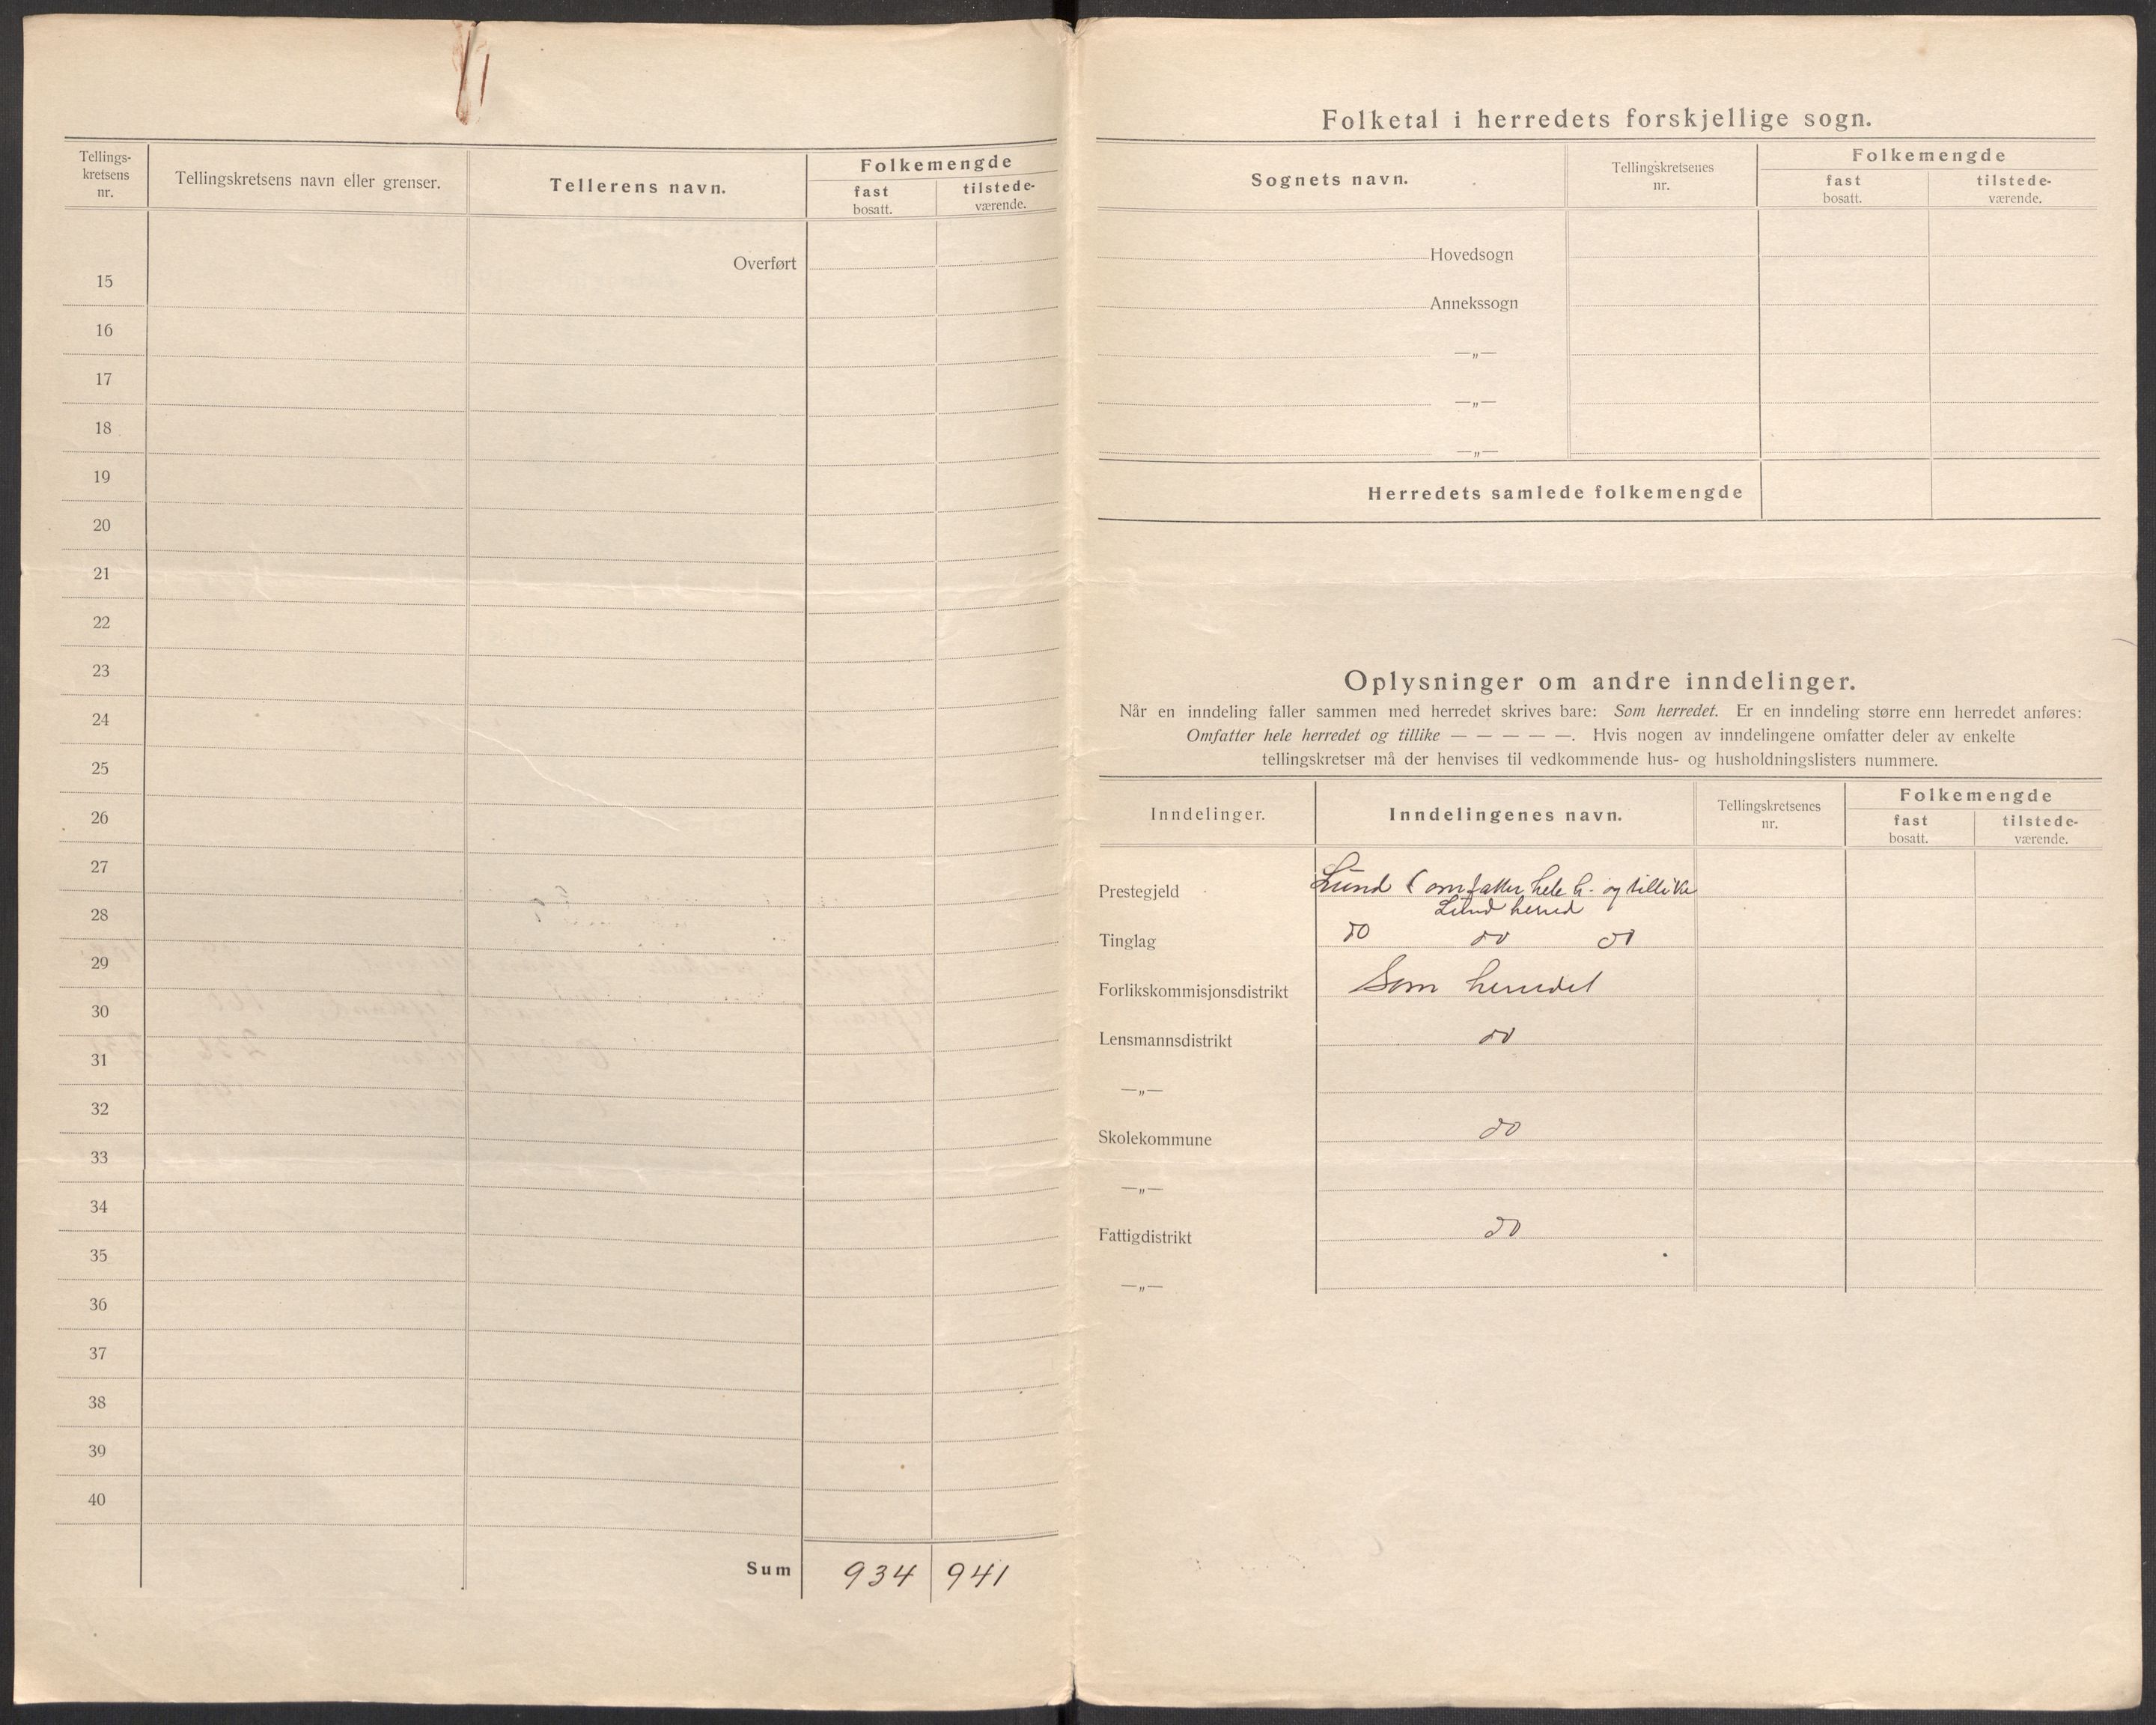 Tellings-
kretsens
nr.
Tellingskretsens navn eller grenser.
Tellerens navn.
Folkemengde
fast
bosatt.
tilstede-
værende.
Overført
15
16
17
18
19
20
21
22
23
24
25
26
27
28
29
30
31
32
33
34
35
36
37
38
39
40
Sum 934 941
Folketal i herredets forskjellige sogn.
Sognets navn.
Tellingskretsenes
nr.
Folkemengde
fast
bosatt.
tilstede-
værende.
Hovedsogn
Annekssogn
—„—
—„—
—„—
Herredets samlede folkemengde
Oplysninger om andre inndelinger.
Når en inndeling faller sammen med herredet skrives bare: Som herredet. Er en inndeling større enn herredet anføres:
Omfatter hele herredet og tillike — — — — —. Hvis nogen av inndelingene omfatter deler av enkelte
tellingskretser må der henvises til vedkommende hus- og husholdningslisters nummere.
Inndelinger.
Inndelingenes navn.
Tellingskretsenes
nr.
Folkemengde
fast
bosatt.
tilstede-
værende.
Prestegjeld Lund (omfatter hele h. og tillike
Lund herred
Tinglag do do do
Forlikskommisjonsdistrikt Som herredet
Lensmannsdistrikt do
—„—
Skolekommune do
—„—
Fattigdistrikt do
—„—